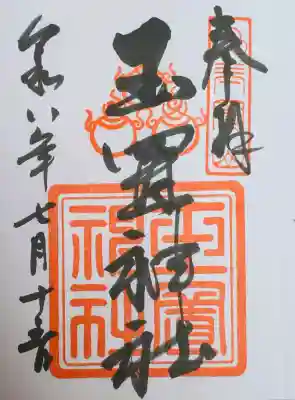 奉拝
玉置神社
令和八年七月十
玉置神社